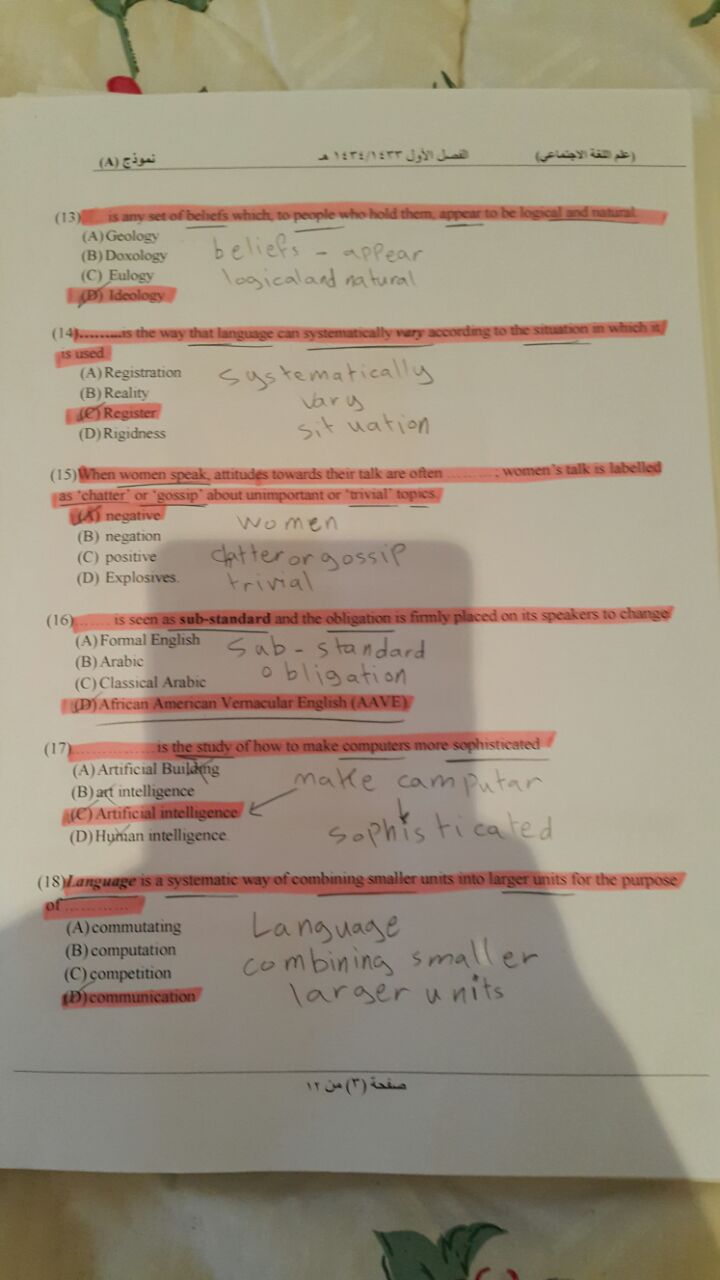 (علم اللغة الاجتماعي) الفصل الأول ١٤٣٤/١٤٣٣ هـ نموذج (A)
(13) .... is any set of beliefs which, to people who hold them, appear to be logical and natural.
(A) Geology
(B) Doxology
(C) Eulogy
(D) Ideology
beliefs - appear
logical and natural
(14).........is the way that language can systematically vary according to the situation in which it
is used.
(A) Registration
(B) Reality
(C) Register
(D) Rigidness
systematically
vary
situation
(15) When women speak, attitudes towards their talk are often ........., women's talk is labelled
as 'chatter' or 'gossip' about unimportant or 'trivial' topics.
(A) negative
(B) negation
(C) positive
(D) Explosives.
women
chatter or gossip
trivial
(16)....... is seen as sub-standard and the obligation is firmly placed on its speakers to change
(A) Formal English
(B) Arabic
(C) Classical Arabic
(D) African American Vernacular English (AAVE)
Sub-standard
obligation
(17)................is the study of how to make computers more sophisticated
(A) Artificial Building
(B) art intelligence
(C) Artificial intelligence
(D) Human intelligence.
make computar
sophisticated
(18) Language is a systematic way of combining smaller units into larger units for the purpose
of .............
(A) commutating
(B) computation
(C) competition
(D) communication
Language
combining smaller
larger units
صفحة (٣) من ١٢